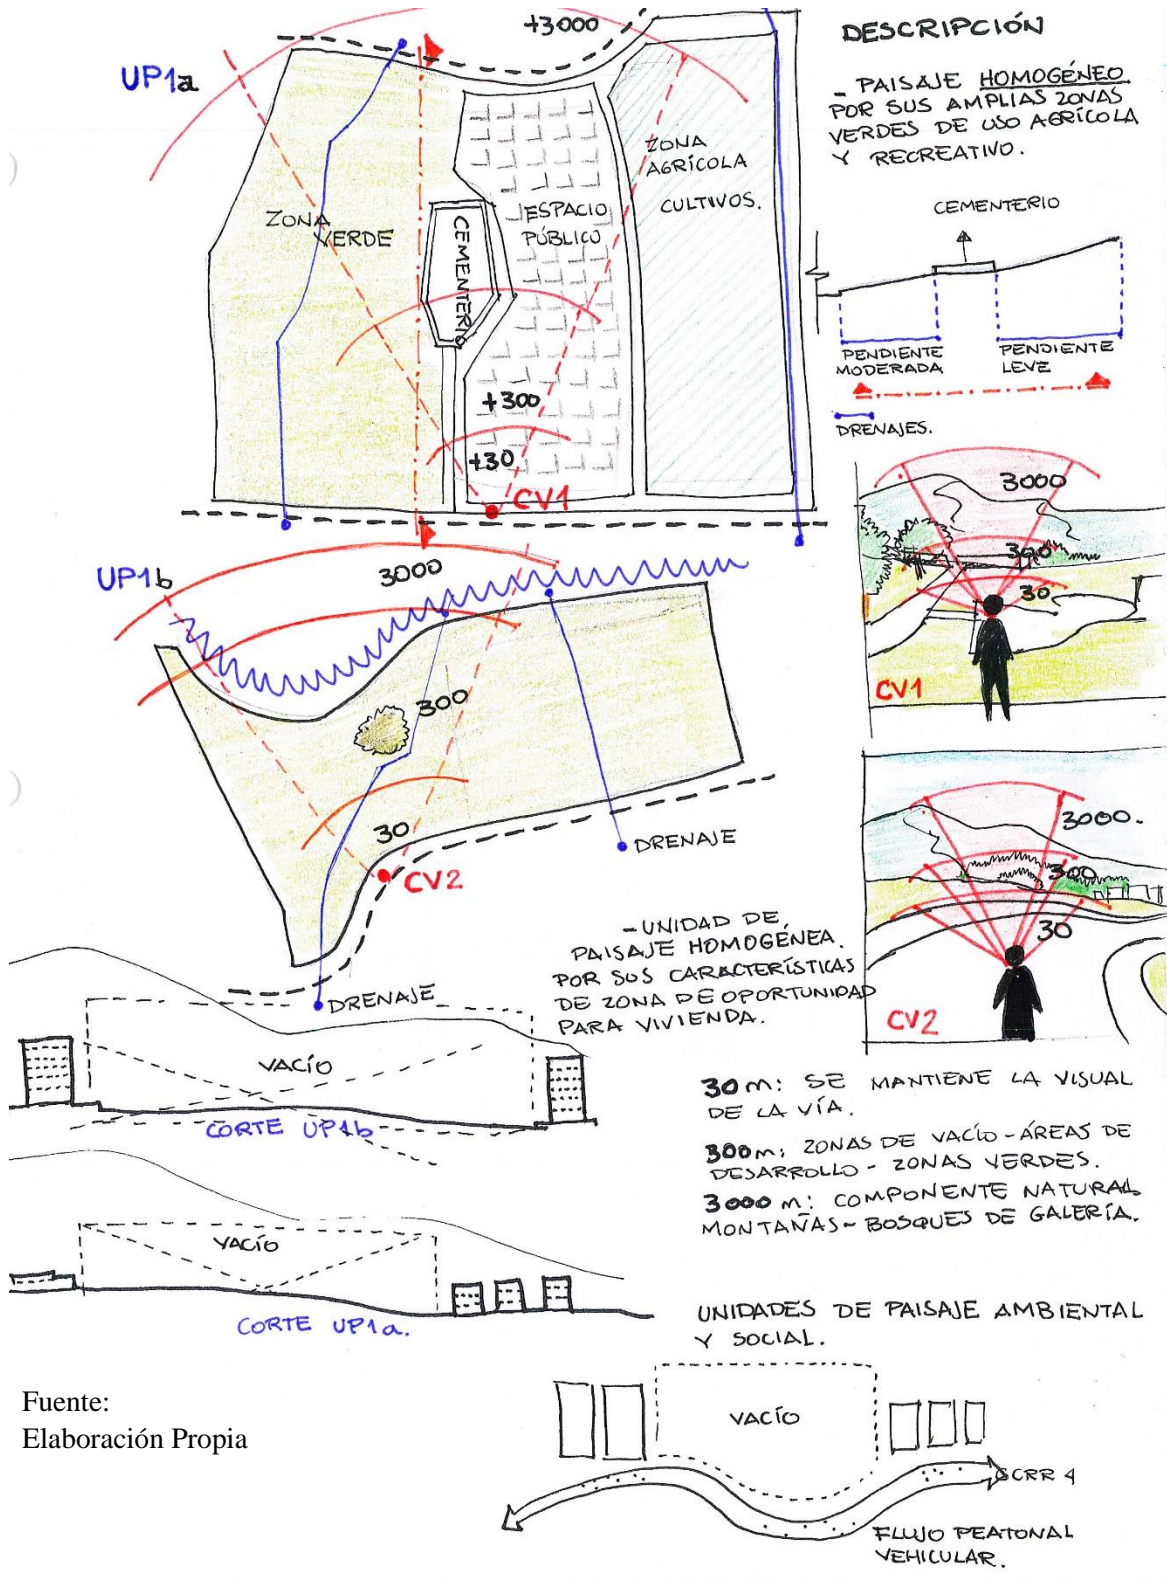 +3000
UP1a
ZONA
VERDE
CEMENTERIO
ESPACIO
PÚBLICO
ZONA
AGRÍCOLA
CULTIVOS.
+300
+30
CV1
DESCRIPCIÓN
- PAISAJE HOMOGÉNEO
POR SUS AMPLIAS ZONAS
VERDES DE USO AGRÍCOLA
Y RECREATIVO.
CEMENTERIO
PENDIENTE
MODERADA
PENDIENTE
LEVE
DRENAJES.
3000
300
30
CV1
UP1b
3000
300
30
CV2
DRENAJE
DRENAJE
3000.
300
30
CV2
- UNIDAD DE
PAISAJE HOMOGÉNEA.
POR SUS CARACTERÍSTICAS
DE ZONA DE OPORTUNIDAD
PARA VIVIENDA.
VACÍO
CORTE UP1b
VACÍO
CORTE UP1a.
30m: SE MANTIENE LA VISUAL
DE LA VÍA.
300m: ZONAS DE VACÍO - ÁREAS DE
DESARROLLO - ZONAS VERDES.
3000 m: COMPONENTE NATURAL
MONTAÑAS - BOSQUES DE GALERÍA.
UNIDADES DE PAISAJE AMBIENTAL
Y SOCIAL.
VACÍO
CRR 4
FLUJO PEATONAL
VEHICULAR.
Fuente:
Elaboración Propia